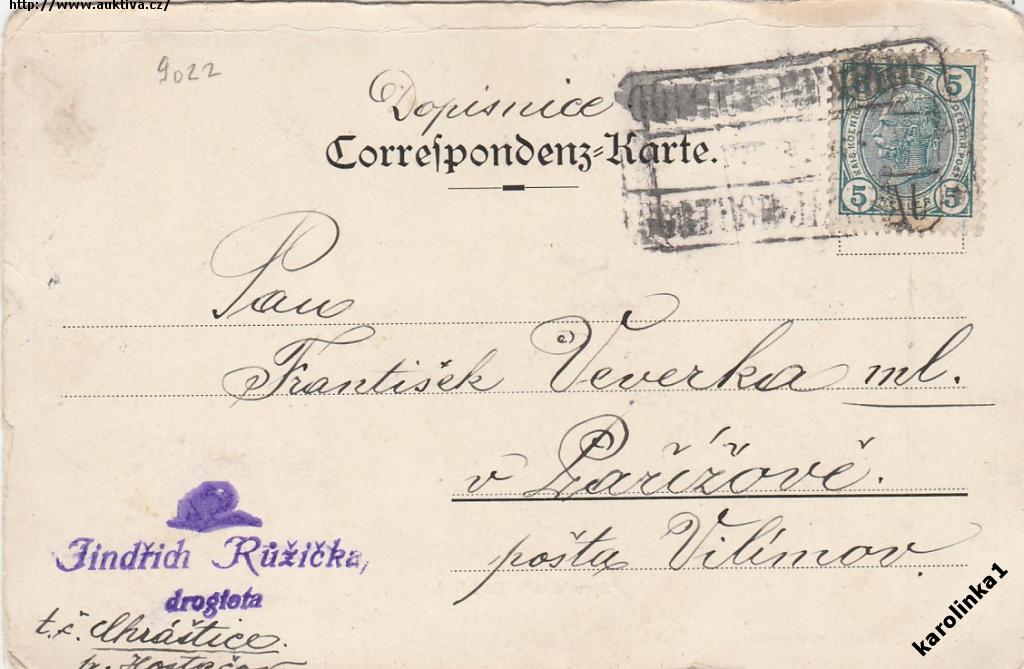 http://www.auktiva.cz/
9022
Dopisnice
Correſpondenz-Karte.
5 5
KAIS. KOENIGL. OESTERR. POST
5 HELLER 5
Pan
František Veverka ml.
v Pařížově.
pošta Vilímov.
Jindřich Růžička,
drogista
t.č. Chráštice.
karolinka1